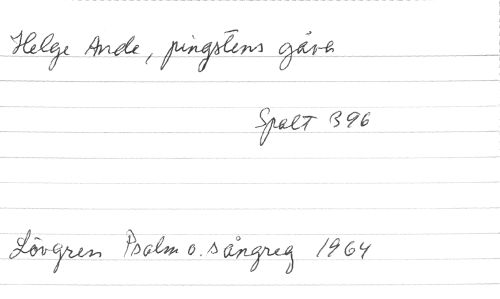 Helge Ande, pingstens gåva
Spalt 396
Lövgren Psalm o. sångreg 1964